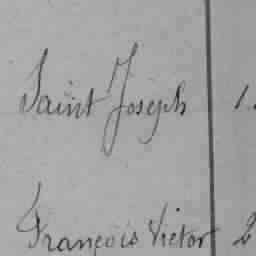 Saint Joseph 1.
François Victor 2